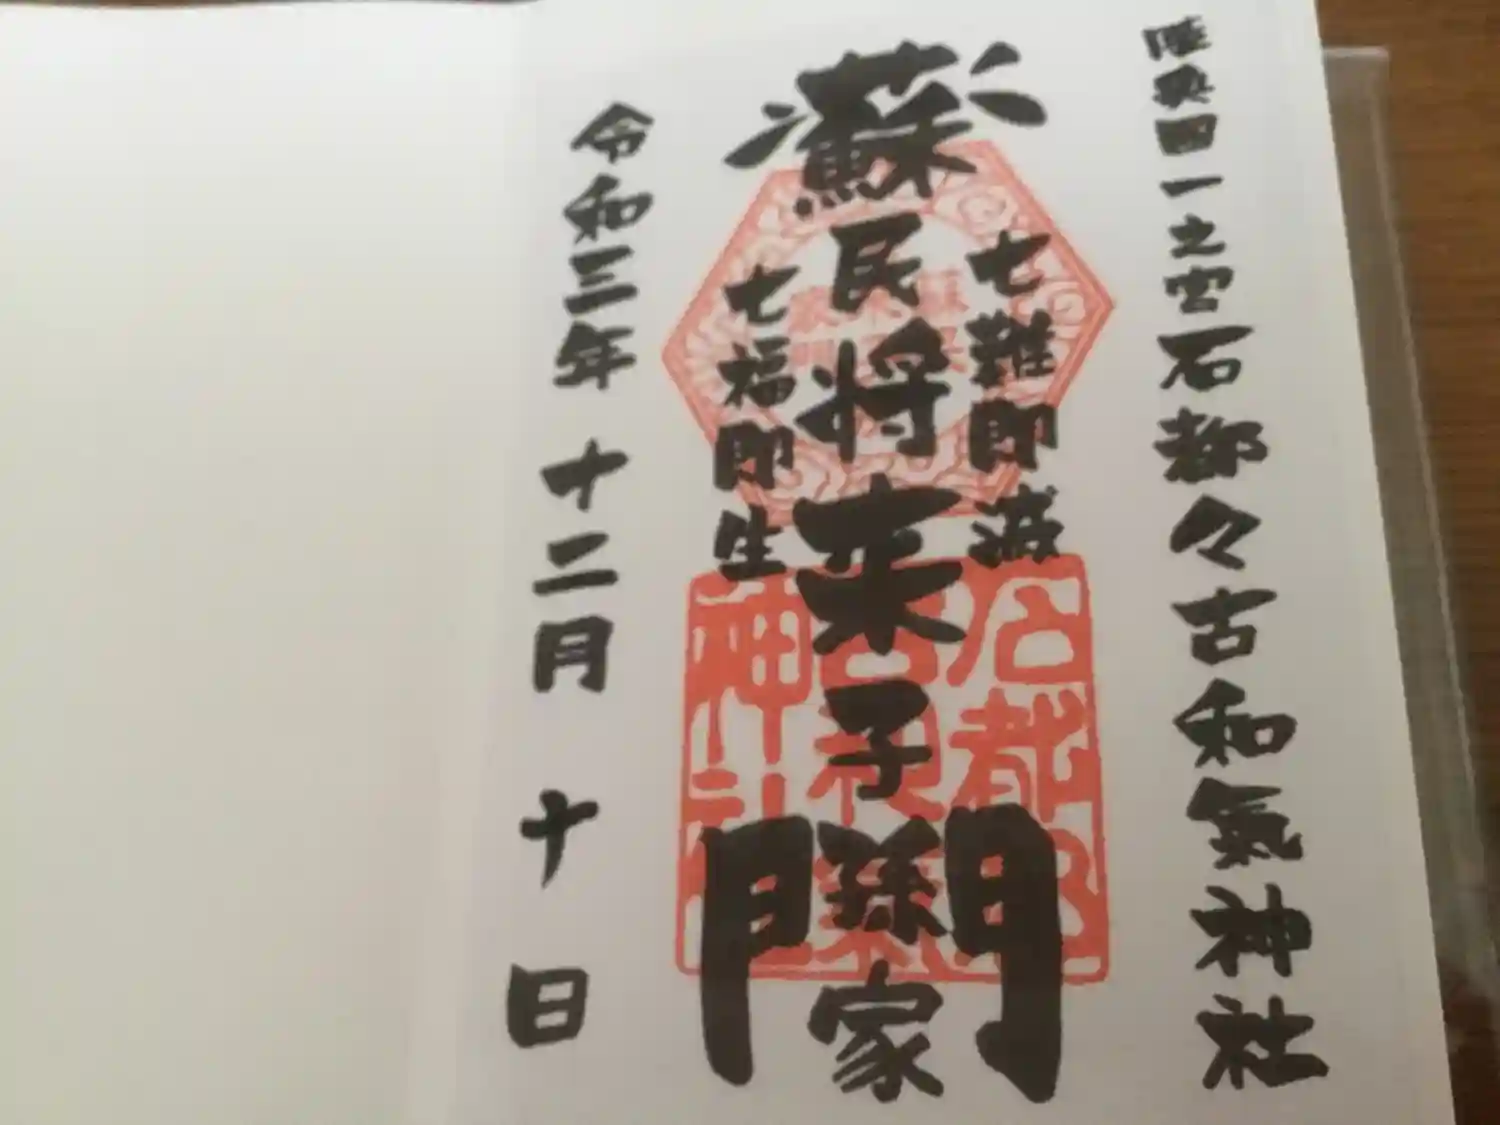 陸奥国一之宮石都々古和氣神社
七難即滅
蘇民将来子孫家門
七福即生
令和三年 十二月 十日
石都都古和氣神社